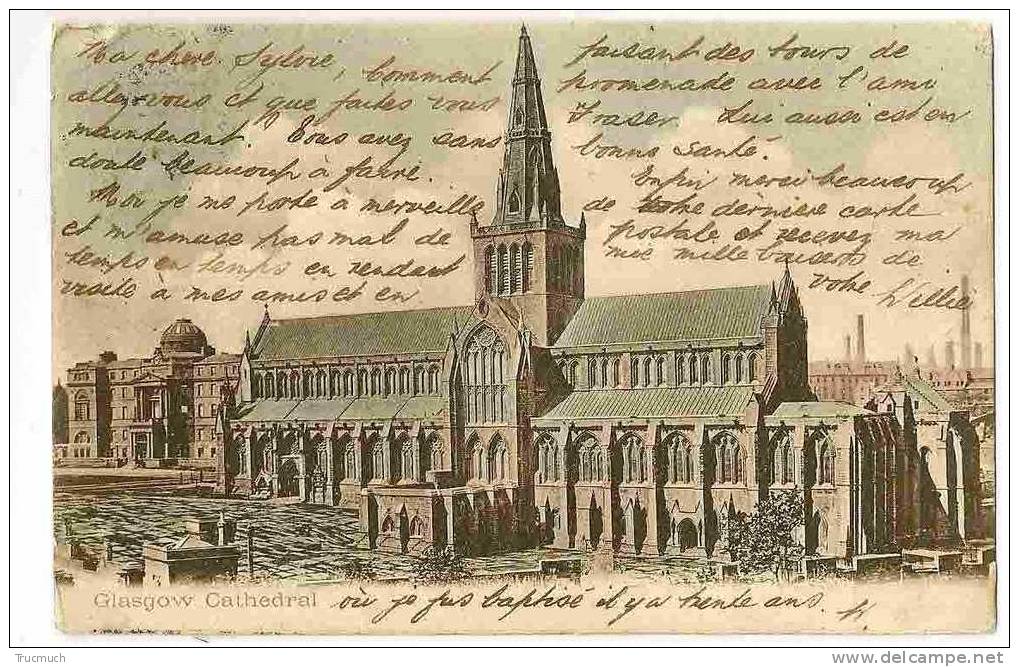 Ma chere Sylvie, Comment
allez-vous et que faites vous
maintenant? Vous avez sans
doute beaucoup à faire.
Moi je me porte à merveille
et m'amuse pas mal de
temps en temps en rendant
visite à mes amis et en
faisant des tours de
promenade avec l'ami
Fraser. Lui aussi est en
bonne santé.
Enfin merci beaucoup
de votre dernière carte
postale et recevez ma
mie mille baisers de
votre Willie
Glasgow Cathedral
où je fus baptisé il y a trente ans.
Trucmuch
www.delcampe.net